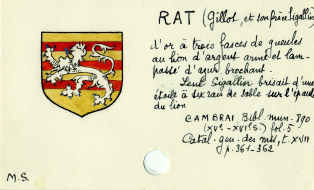 RAT (Gillot, et son frère Sigallin)
d'or à trois fasces de gueules
au lion d'argent armé et lam-
passé d'azur brochant.
Leur Sigallin brisait d'une
étoile à six rais de sable sur l'épaule
du lion
CAMBRAI, Bibl. mun. 890
(XVe-XVIe s.) fol. 5
Catal. gén. des mss, t. XVII
p. 361-362
M.S.